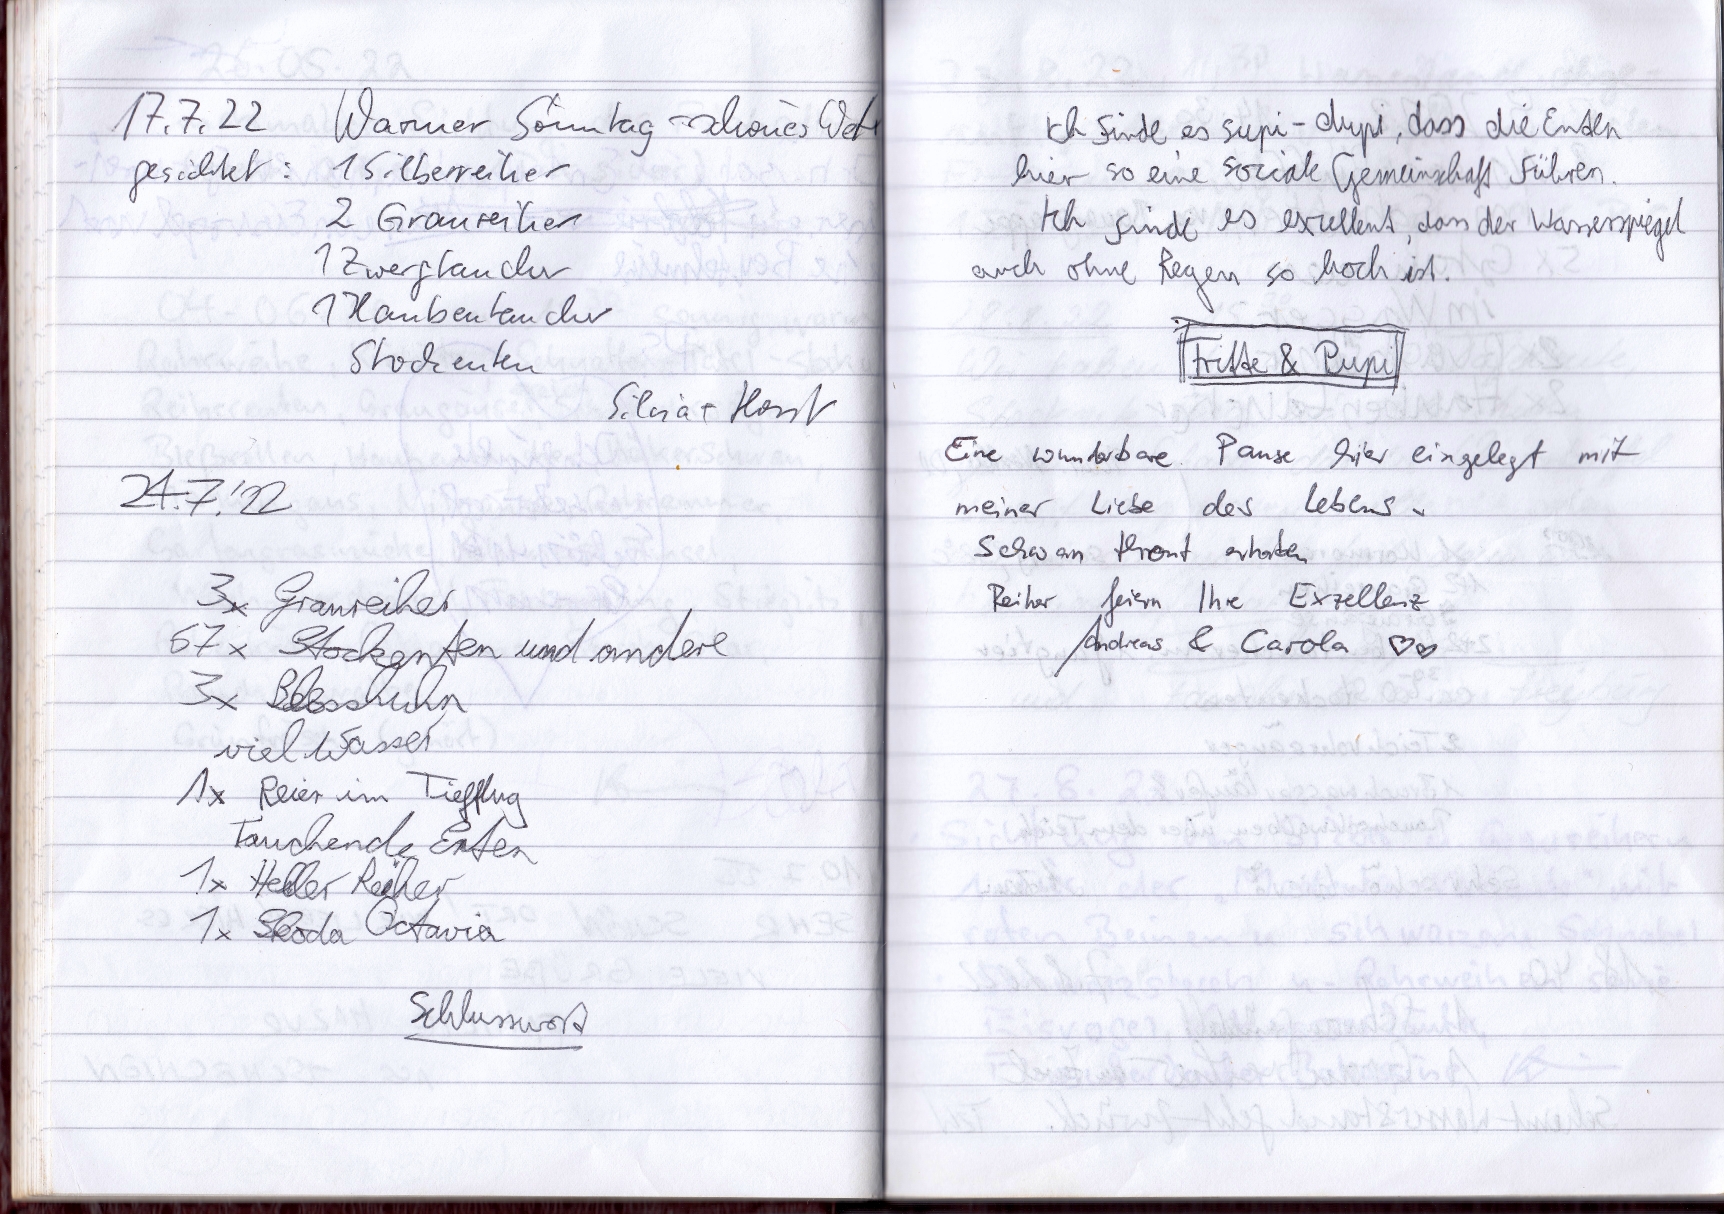 17.7.22 Warmer Sonntag schönes Wet
gesichtet : 1 Silberreiher
2 Graureiher
1 Zwergtaucher
1 Haubentaucher
Stockenten
Silvia + Horst
24.7.'22
3x Graureiher
67x Stockenten und andere
3x Blesshuhn
viel Wasser
1x Reier im Tiefflug
Tauchende Enten
1x Heller Reiher
1x Skoda Octavia
Schlusswort
Ich finde es supi-dupi, dass die Enten
hier so eine soziale Gemeinschaft führen.
Ich finde es exzellent, dass der Wasserspiegel
auch ohne Regen so hoch ist.
Fritte & Pupi
Eine wunderbare Pause hier eingelegt mit
meiner Liebe des Lebens.
Schwan thront erhaben
Reiher feiern Ihre Exzellenz
Andreas & Carola ♡♡